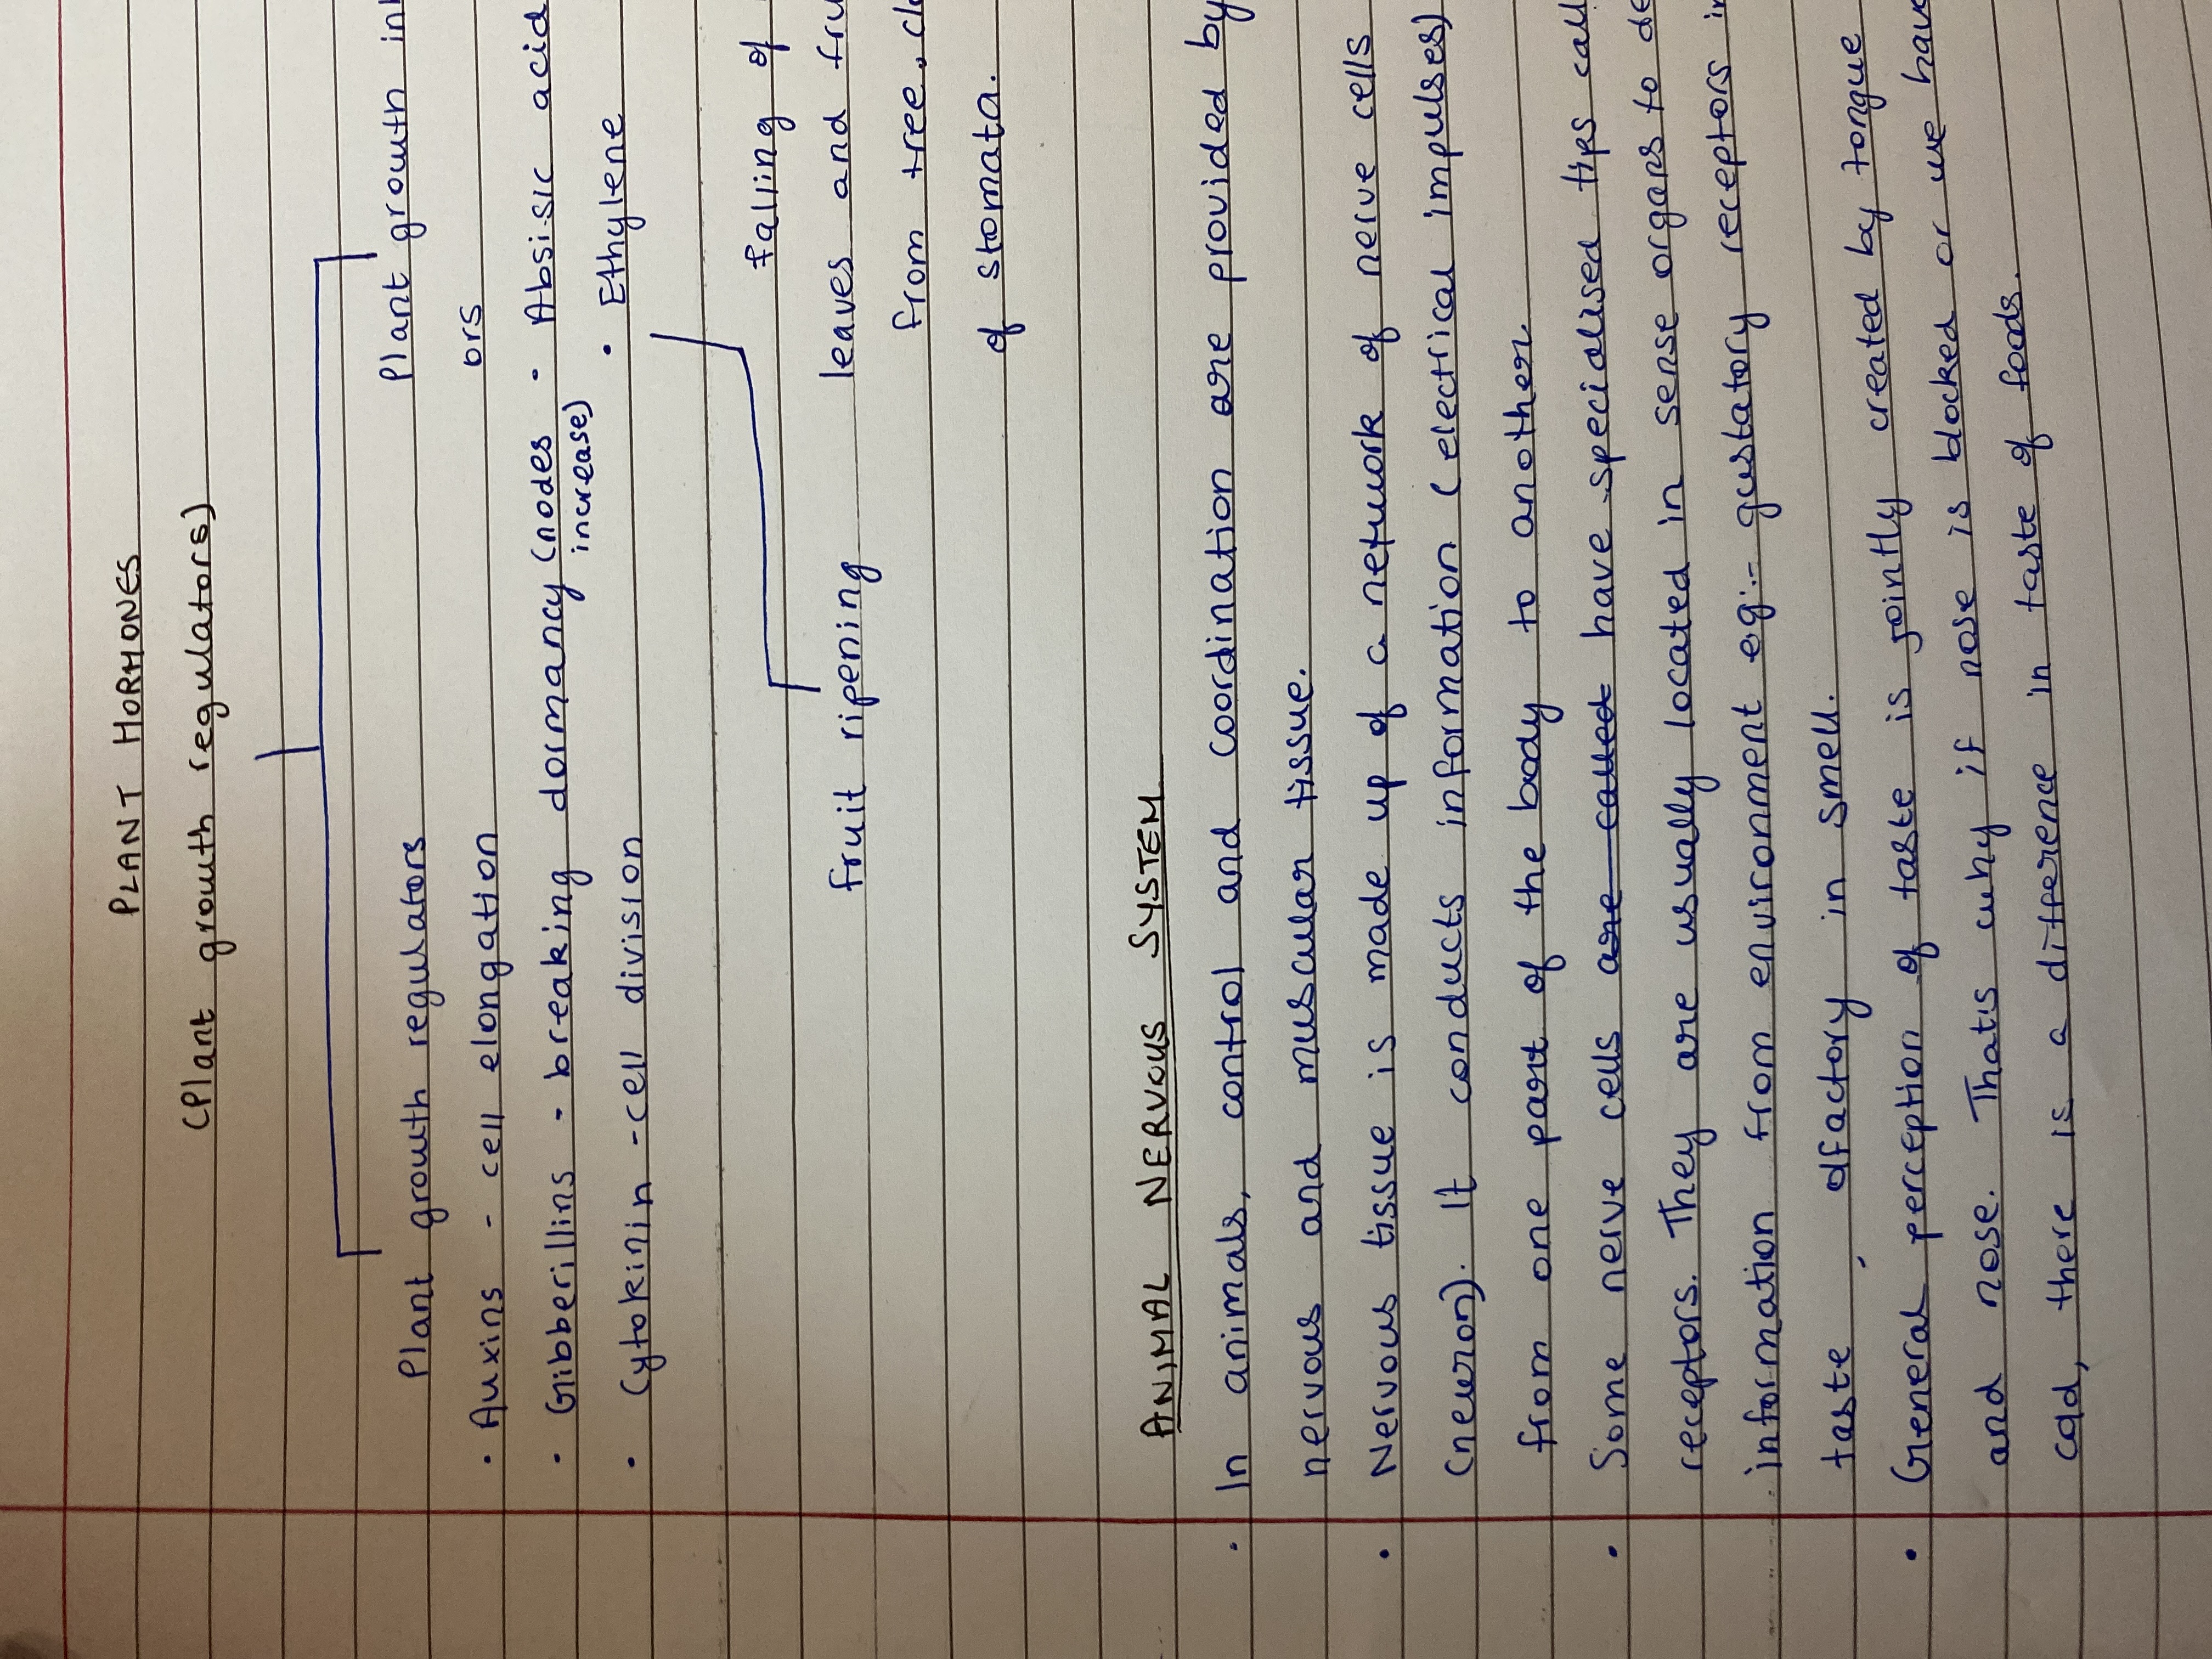 PLANT HORMONES
(Plant growth regulators)
Plant growth regulators Plant growth in
ors
• Auxins - cell elongation
• Gibberillins - breaking dormancy (nodes increase) • Absisic acid
• Cytokinin - cell division • Ethylene
fruit ripening falling of
leaves and fru
from tree, clo
of stomata.
ANIMAL NERVOUS SYSTEM
• In animals, control and coordination are provided by
nervous and muscular tissue.
• Nervous tissue is made up of a network of nerve cells
(neuron). It conducts information (electrical impulses)
from one part of the body to another
• Some nerve cells are called have specialised tips call
receptors. They are usually located in sense organs to de
information from environment eg:- gustatory receptors in
taste, olfactory in smell.
• General perception of taste is jointly created by tongue
and nose. Thats why if nose is blocked or we have
cold, there is a difference in taste of foods.